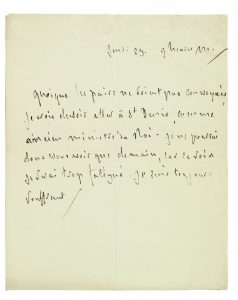 jeudi 29. 9 heures m.
quoique les pairs ne soient pas convoqués
je crois devoir aller à St Denis, comme
ancien ministre du Roi. je ne pourrai
donc vous voir que demain, car ce soir
je serai trop fatigué. je suis toujours
souffrant